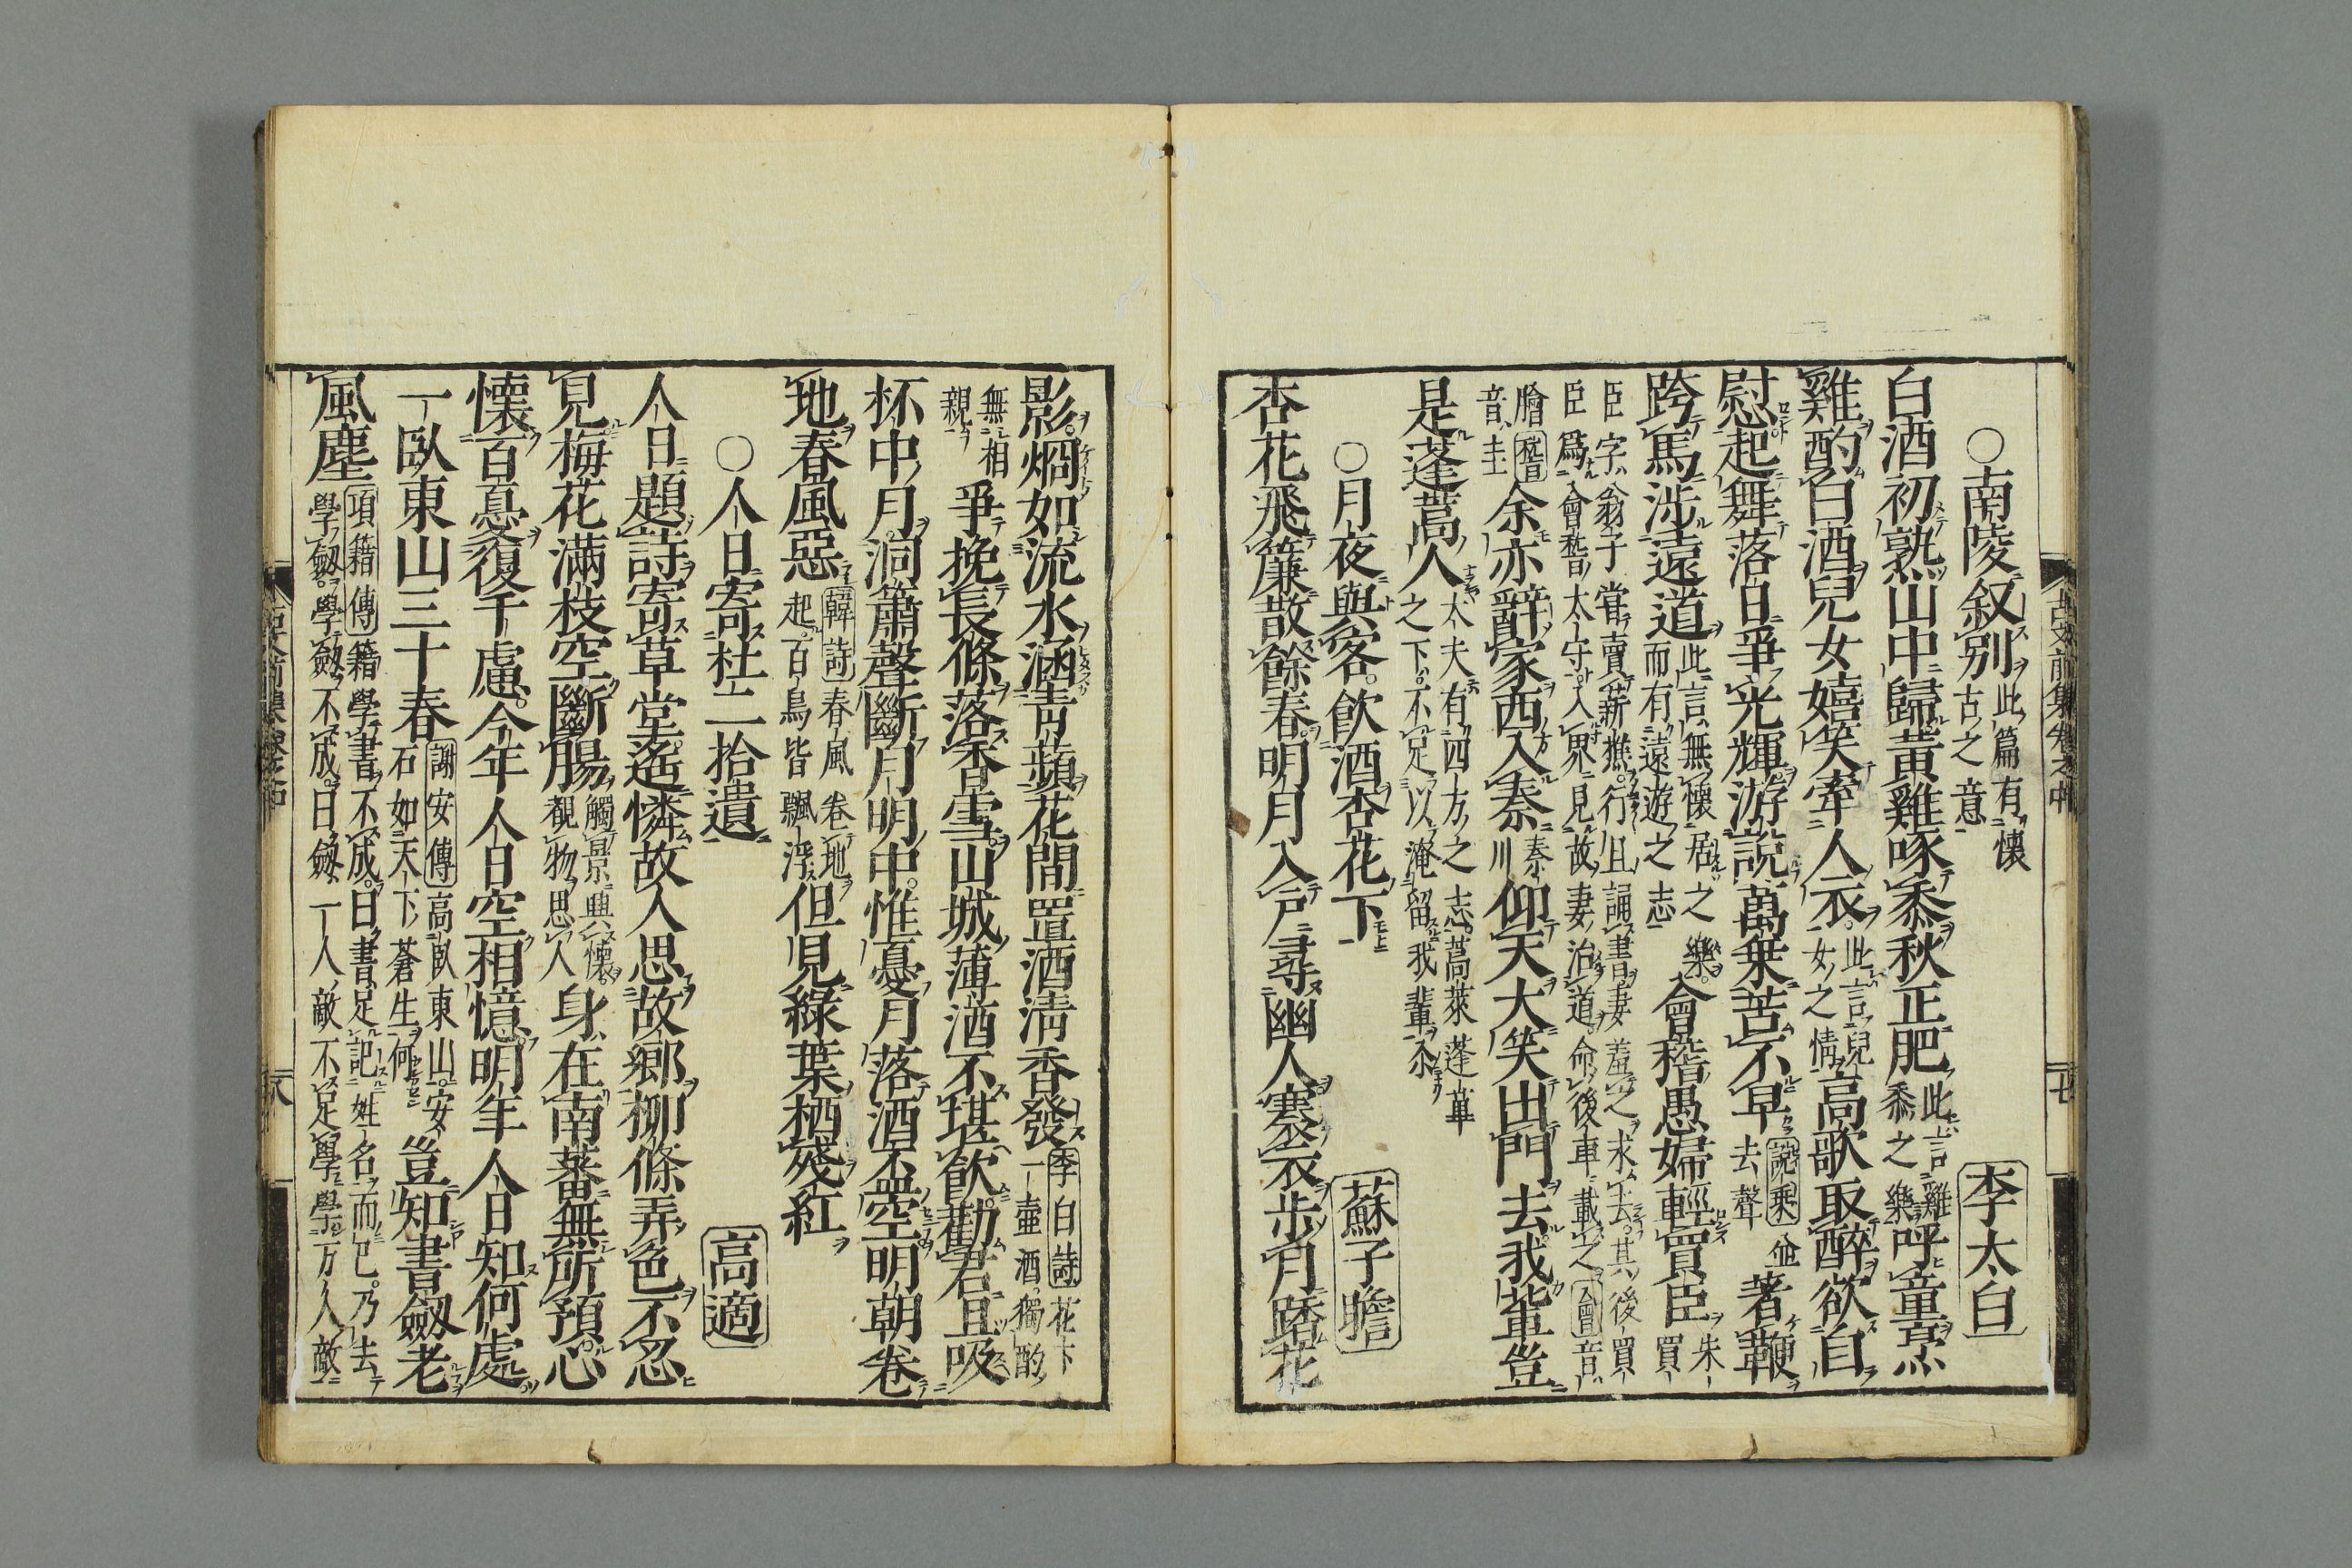 ○南陵叙別 此篇有懷古之意 李太白
白酒初熟山中歸黃雞啄黍秋正肥 此言雞黍之樂 呼童烹
雞酌白酒兒女嬉笑牽人衣 此言兒女之情 高歌取醉欲自
慰起舞落日爭光輝游說萬乗苦不早 說乗並去聲 著鞭
跨馬涉遠道 此言無懷居之樂而有遠遊之志 會稽愚婦輕買臣 朱買
臣字翁子甞賣薪樵行且誦書妻羞之求去其後買臣爲會稽太守入界見故妻治道命後車載之 會音
膾稽音圭 余亦辭家西入秦 秦川 仰天大笑出門去我輩豈
是蓬蒿人 太夫有四方之志蒿萊蓬蓽之下不足以淹留我輩
○月夜與客飲酒杏花下 蘇子瞻
杏花飛簾散餘春明月入戶尋幽人褰衣步月踏花
影烱如流水涵青蘋花間置酒淸香發 李白詩花下一壷酒獨酌
無相親 爭挽長條落香雪山城薄酒不堪飮勸君且吸
杯中月洞簫聲斷月明中惟憂月落酒盃空明朝卷
地春風惡 韓詩春風卷地起百鳥皆飄浮 但見綠葉栖殘紅
○人日寄杜二拾遺 高適
人日題詩寄草堂遙憐故人思故鄕柳條弄色不忍
見梅花滿枝空斷腸 觸景興懷覩物思人 身在南蕃無所預心
懷百憂復千慮今年人日空相憶明年人日知何處
一臥東山三十春 謝安傳高臥東山安石如天下蒼生何 豈知書劔老
風塵 項籍傳籍學書不成曰書足記姓名而已乃去學劔學劔不成曰劔一人敵不足學學万人敵
古文前集卷之中 七
古文前集卷之中 八